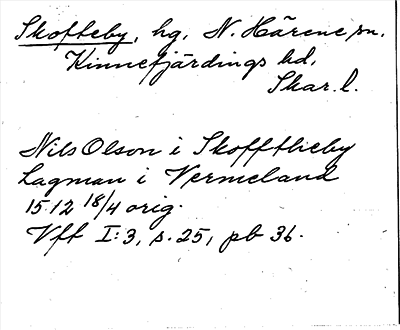 Skofteby, hg, N. Härene sn.
Kinnefjärdings hd.
Skar. l.
Nils Olson i Skofftheby
Lagman i Vermeland
1512 18/4 orig.
Vft I:3, s. 25, pb 36.